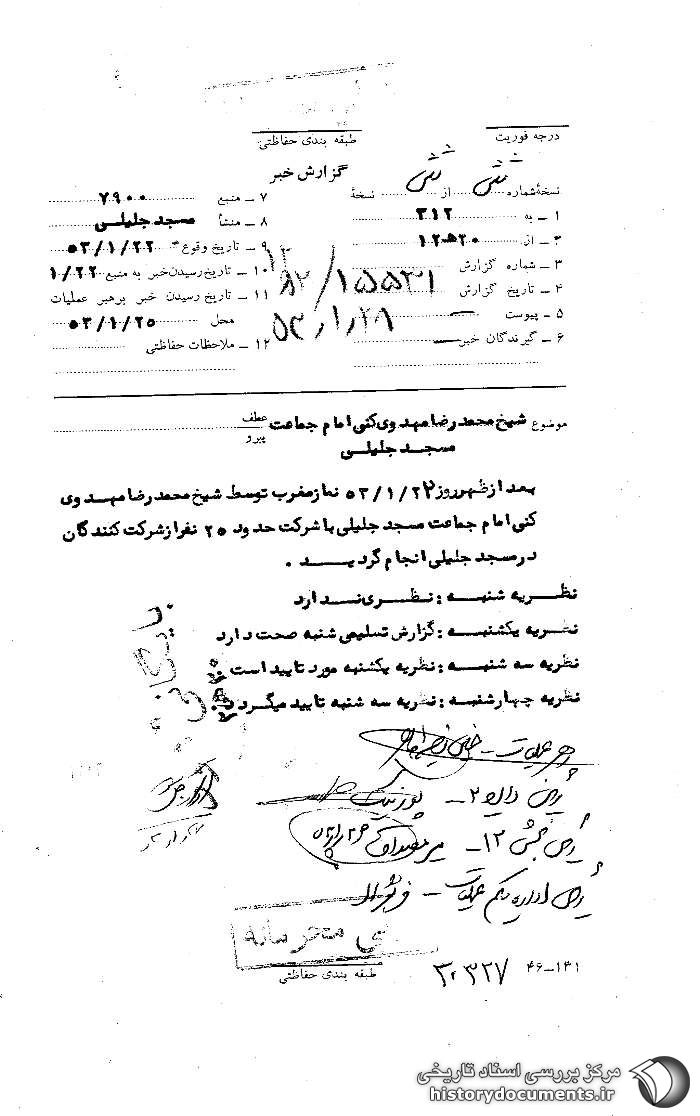 درجه فوریت
طبقه بندی حفاظتی
گزارش خبر
نسخهٔ شماره شش از شش نسخهٔ
۱ ـ به ۳۱۲
۲ ـ از ۲۰ه۱۲
۳ ـ شماره گزارش ۱۵۵۳۱/
۴ ـ تاریخ گزارش ۵۳/۱/۲۸
۵ ـ پیوست —
۶ ـ گیرندگان خبر —
۷ ـ منبع ۷۹۰۰
۸ ـ منشأ مسجد جلیلی
۹ ـ تاریخ وقوع ۵۳/۱/۲۲
۱۰ ـ تاریخ رسیدن خبر به منبع ۱/۲۲
۱۱ ـ تاریخ رسیدن خبر برهبر عملیات
محل ۵۳/۱/۲۵
۱۲ ـ ملاحظات حفاظتی
موضوع شیخ محمدرضا مهدوی کنی امام جماعت
مسجد جلیلی
عطف
پیرو
بعد از ظهر روز ۵۳/۱/۲۲ نماز مغرب توسط شیخ محمدرضا مهدوی
کنی امام جماعت مسجد جلیلی با شرکت حدود ۲۵ نفر از شرکت کنندگان
در مسجد جلیلی انجام گردید .
نظریه شنبه : نظری ندارد
نظریه یکشنبه : گزارش تسلیمی شنبه صحت دارد
نظریه سه شنبه : نظریه یکشنبه مورد تایید است
نظریه چهارشنبه : نظریه سه شنبه تایید میگردد
بایگانی
رهبر عملیات ـ
رئیس دایره ۲ ـ
رئیس بخش ۱۲ ـ
رئیس اداره یکم عملیات ـ
محرمانه
طبقه بندی حفاظتی
۴۶-۱۳۱
۳۰۳۲۷
مرکز بررسی اسناد تاریخی
historydocuments.ir